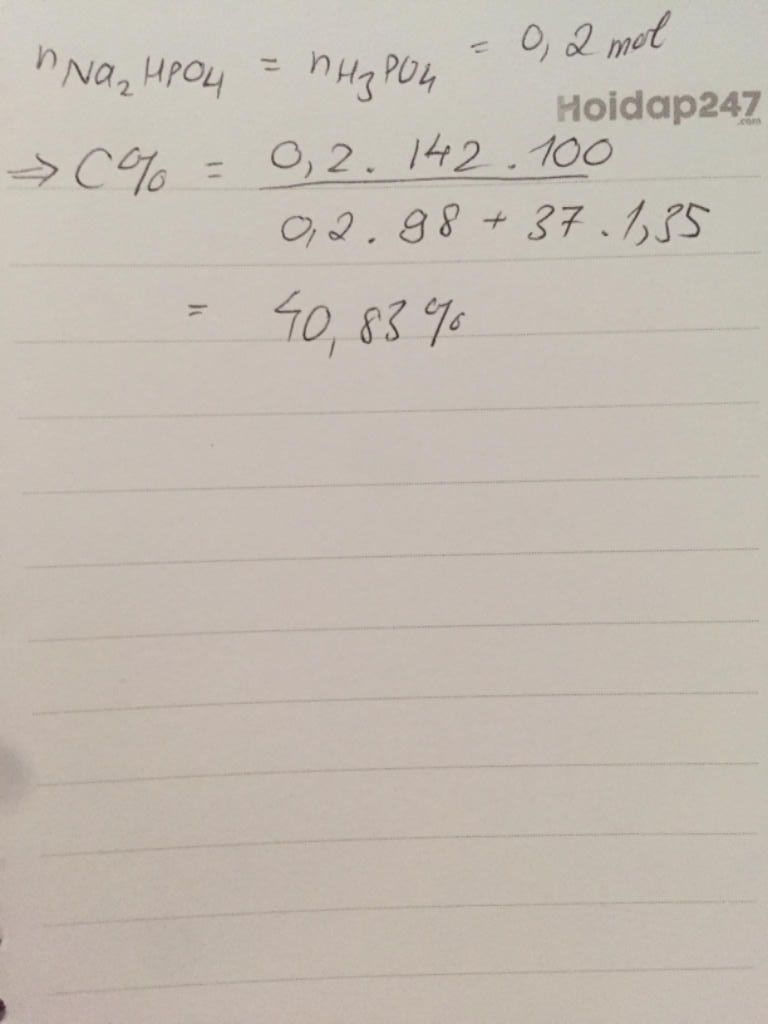 nNa₂HPO4 = nH₃PO4 = 0,2 mol
Hoidap247
.com
⇒ C% = 0,2 . 142 . 100
0,2 . 98 + 37 . 1,35
= 40,83 %